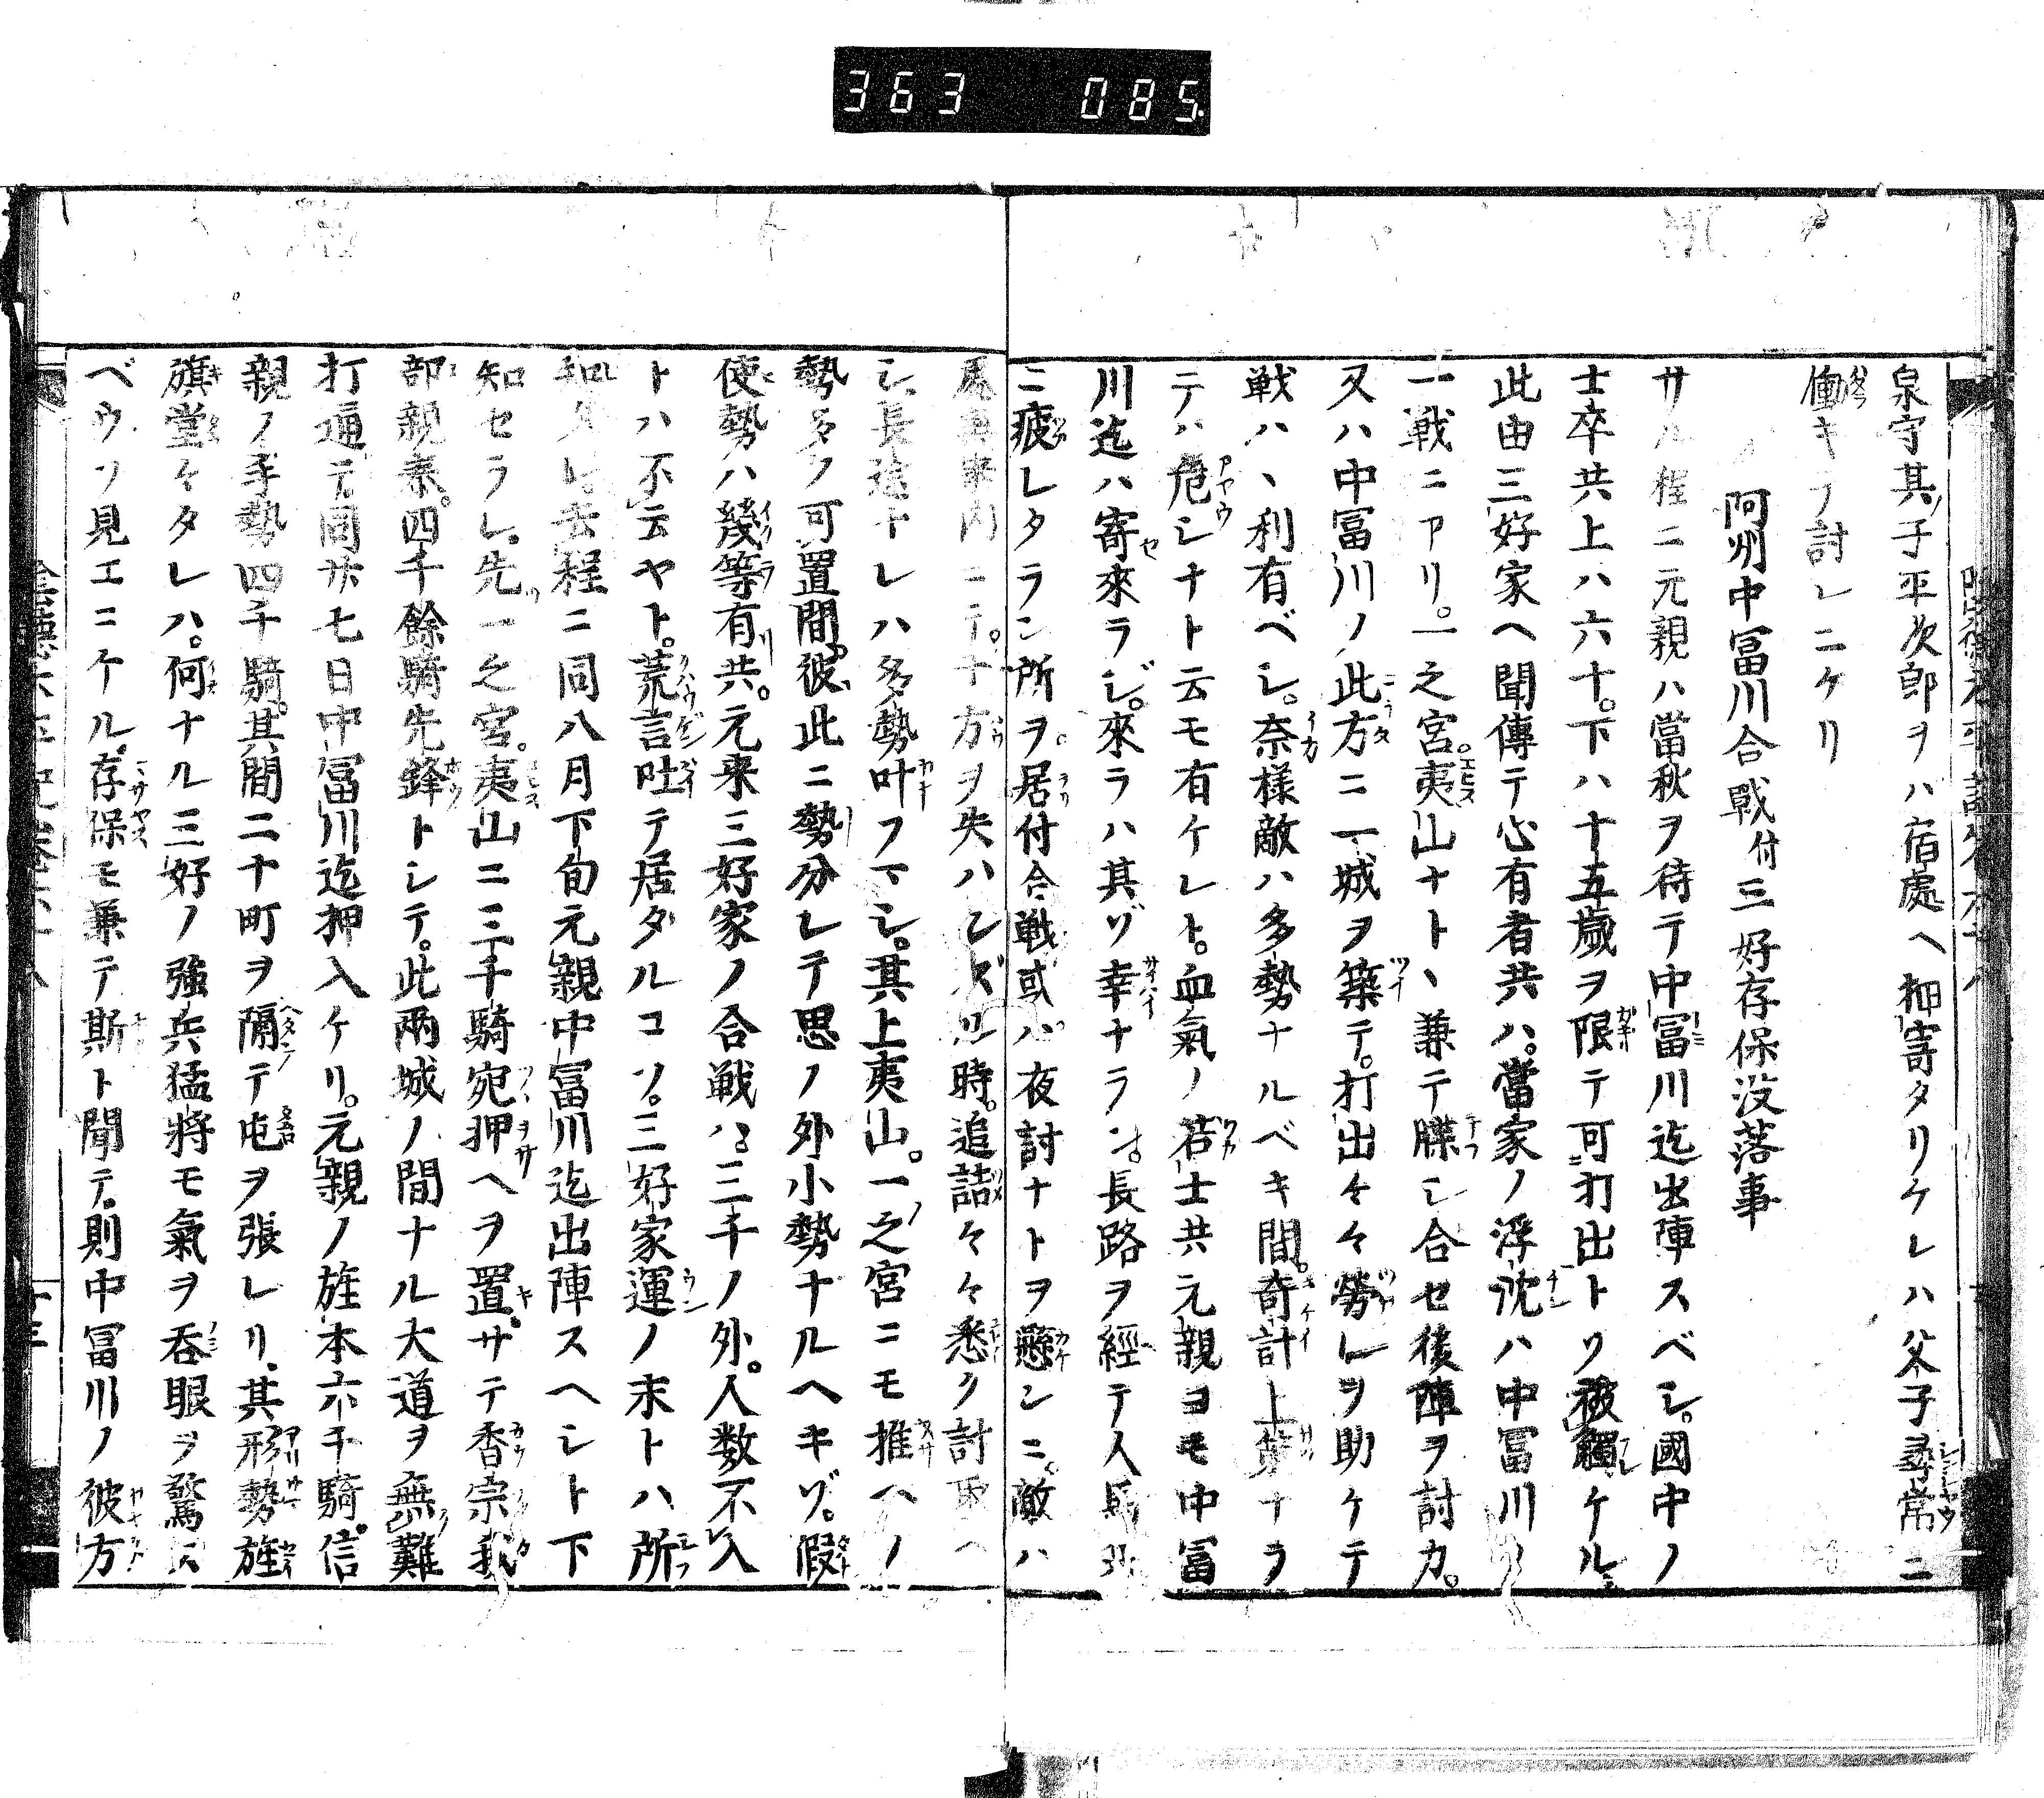 363 085
泉守其子平次郎ヲハ宿處ヘ相寄タリケレハ父子尋常ニ
働キテ討レニケリ
阿州中冨川合戰付三好存保没落事
サル程ニ元親ハ當秋ヲ待テ中冨川迄出陣スベシ。國中ノ
士卒共上ハ六十。下ハ十五歳ヲ限テ可打出トソ被觸ケル。
此由三好家ヘ聞傳テ心有者共ハ。當家ノ浮沈ハ中冨川ノ
一戦ニアリ。一之宮。夷山ナト丶兼テ牒シ合セ後陣ヲ討カ。
又ハ中冨川ノ此方ニ一城ヲ築テ。打出々々勞レヲ助ケテ
戦ハ丶利有ベシ。奈様敵ハ多勢ナルベキ間。奇計上策ナラ
テハ危シナト云モ有ケレト。血氣ノ若士共元親ヨモ中冨
川迄ハ寄來ラジ。來ラハ其ゾ幸ナラン。長路ヲ經テ人馬
ニ疲レタラン所ヲ居付合戦或ハ夜討ナトヲ懸ンニ。敵ハ
ニテ。十方ヲ失ハンズル時。追詰々々悉ク討取ヘ
シ。長途ナレハ多勢叶フマシ。其上夷山。一之宮ニモ推ヘノ
勢多ノ可置間。彼此ニ勢分レテ思ノ外小勢ナルヘキゾ。假
使勢ハ幾等有共。元来三好家ノ合戦ハ。三千ノ外。人数不入
トハ不云ヤト。荒言吐テ居タルコソ。三好家運ノ末トハ所
知タレ去程ニ同八月下旬元親中冨川迄出陣スヘシト下
知セラレ。先一之宮。夷山ニ三千騎宛押ヘヲ置。サテ香宗我
部親泰。四千餘騎先鋒トシテ。此兩城ノ間ナル大道ヲ無難
打通テ。同廿七日中冨川迄押入ケリ。元親ノ旌本六千騎。信
親ノ手勢四千騎。其間二十町ヲ隔テ屯ヲ張レリ。其形勢旌
旗堂々タレハ。何ナル三好ノ強兵猛將モ氣ヲ呑眼ヲ驚ス
ベウソ見エニケル。存保モ兼テ斯ト聞テ。則中冨川ノ彼方